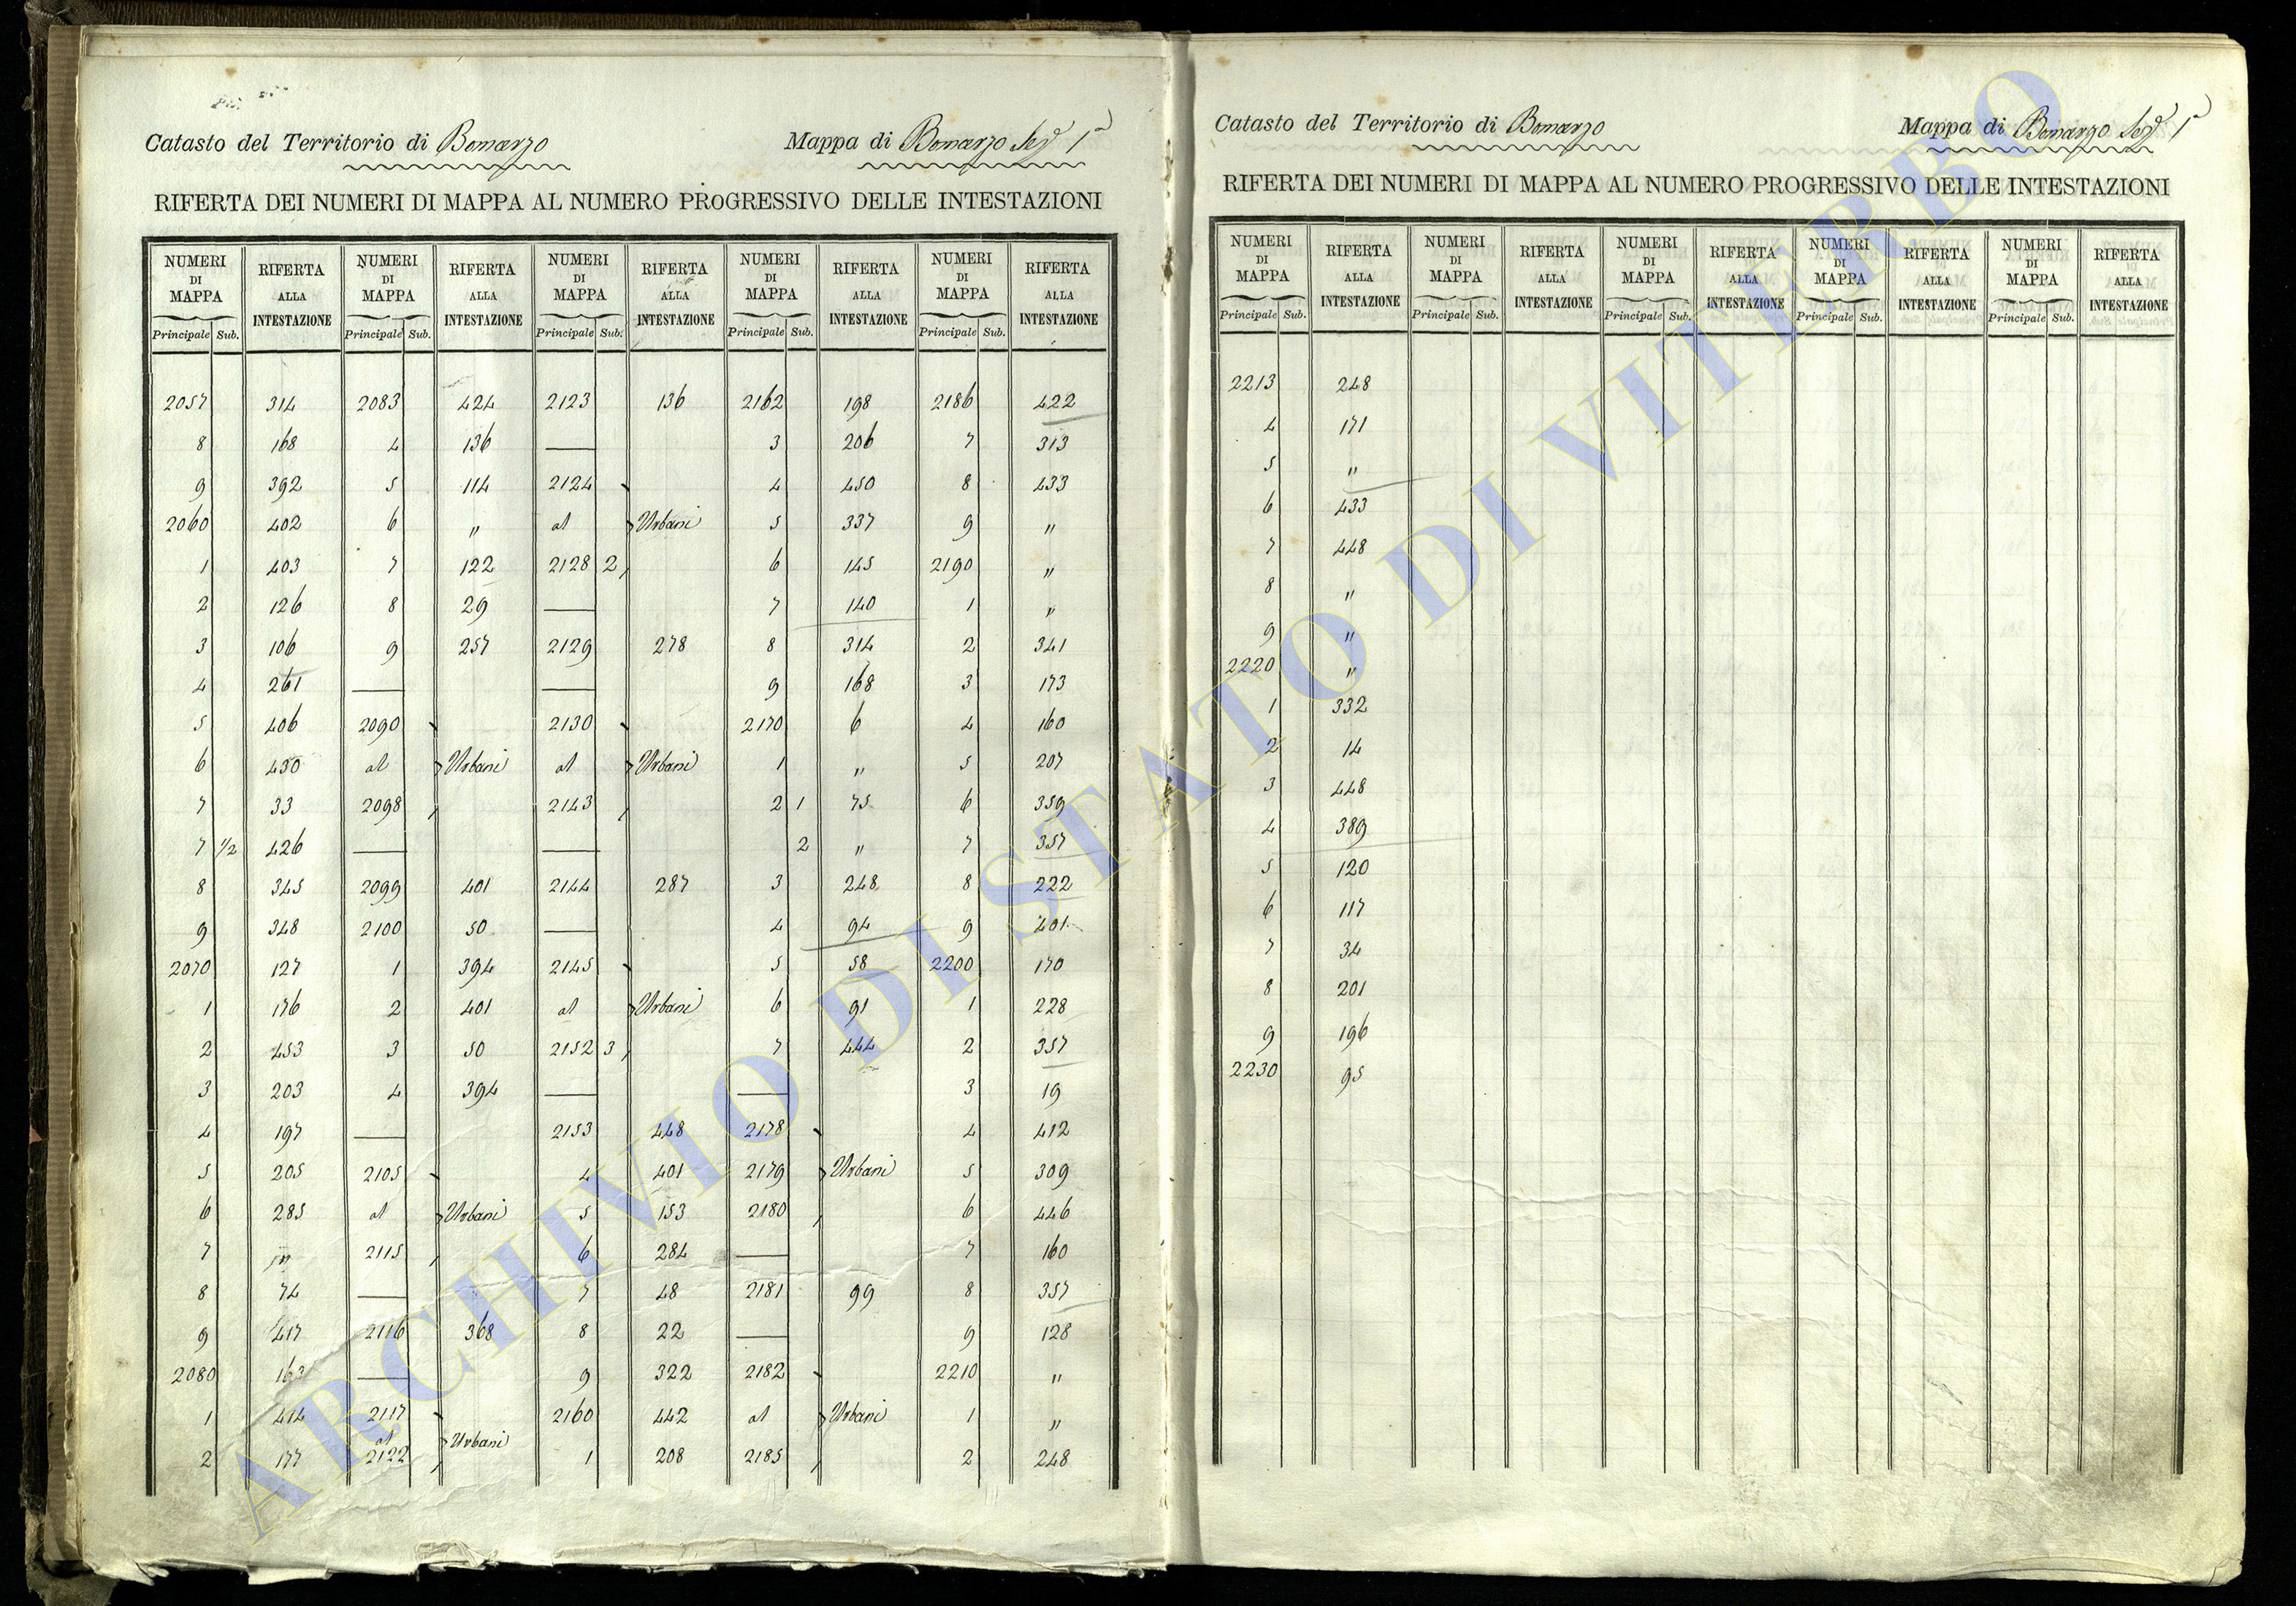 Catasto del Territorio di Bomarzo Mappa di Bomarzo Sez. 1ª
RIFERTA DEI NUMERI DI MAPPA AL NUMERO PROGRESSIVO DELLE INTESTAZIONI
NUMERI DI MAPPA RIFERTA ALLA INTESTAZIONE NUMERI DI MAPPA RIFERTA ALLA INTESTAZIONE NUMERI DI MAPPA RIFERTA ALLA INTESTAZIONE NUMERI DI MAPPA RIFERTA ALLA INTESTAZIONE NUMERI DI MAPPA RIFERTA ALLA INTESTAZIONE
Principale Sub. Principale Sub. Principale Sub. Principale Sub. Principale Sub.
2057 314 2083 424 2123 136 2162 198 2186 422
8 168 4 136 — 3 206 7 313
9 392 5 114 2124 4 450 8 433
2060 402 6 " al Urbani 5 337 9 "
1 403 7 122 2128 2 6 145 2190 "
2 126 8 29 — 7 140 1 "
3 106 9 257 2129 278 8 314 2 341
4 261 — — 9 168 3 173
5 406 2090 2130 2170 6 4 160
6 430 al Urbani al Urbani 1 " 5 207
7 33 2098 2143 2 1 75 6 359
7 1/2 426 — — 2 " 7 357
8 345 2099 401 2144 287 3 248 8 222
9 348 2100 50 — 4 94 9 401
2070 127 1 394 2145 5 58 2200 170
1 176 2 401 al Urbani 6 91 1 228
2 453 3 50 2152 3 7 444 2 357
3 203 4 394 — — 3 19
4 197 — 2153 448 2178 4 412
5 205 2105 4 401 2179 Urbani 5 309
6 285 al Urbani 5 153 2180 6 446
7 " 2115 6 284 — 7 160
8 74 — 7 48 2181 99 8 357
9 417 2116 368 8 22 — 9 128
2080 163 — 9 322 2182 2210 "
1 414 2117 2160 442 al Urbani 1 "
al Urbani
2 177 2122 1 208 2185 2 248
Catasto del Territorio di Bomarzo Mappa di Bomarzo Sez. 1ª
RIFERTA DEI NUMERI DI MAPPA AL NUMERO PROGRESSIVO DELLE INTESTAZIONI
NUMERI DI MAPPA RIFERTA ALLA INTESTAZIONE NUMERI DI MAPPA RIFERTA ALLA INTESTAZIONE NUMERI DI MAPPA RIFERTA ALLA INTESTAZIONE NUMERI DI MAPPA RIFERTA ALLA INTESTAZIONE NUMERI DI MAPPA RIFERTA ALLA INTESTAZIONE
Principale Sub. Principale Sub. Principale Sub. Principale Sub. Principale Sub.
2213 248
4 171
5 "
6 433
7 448
8 "
9 "
2220 "
1 332
2 14
3 448
4 389
5 120
6 117
7 34
8 201
9 196
2230 95
ARCHIVIO DI STATO DI VITERBO